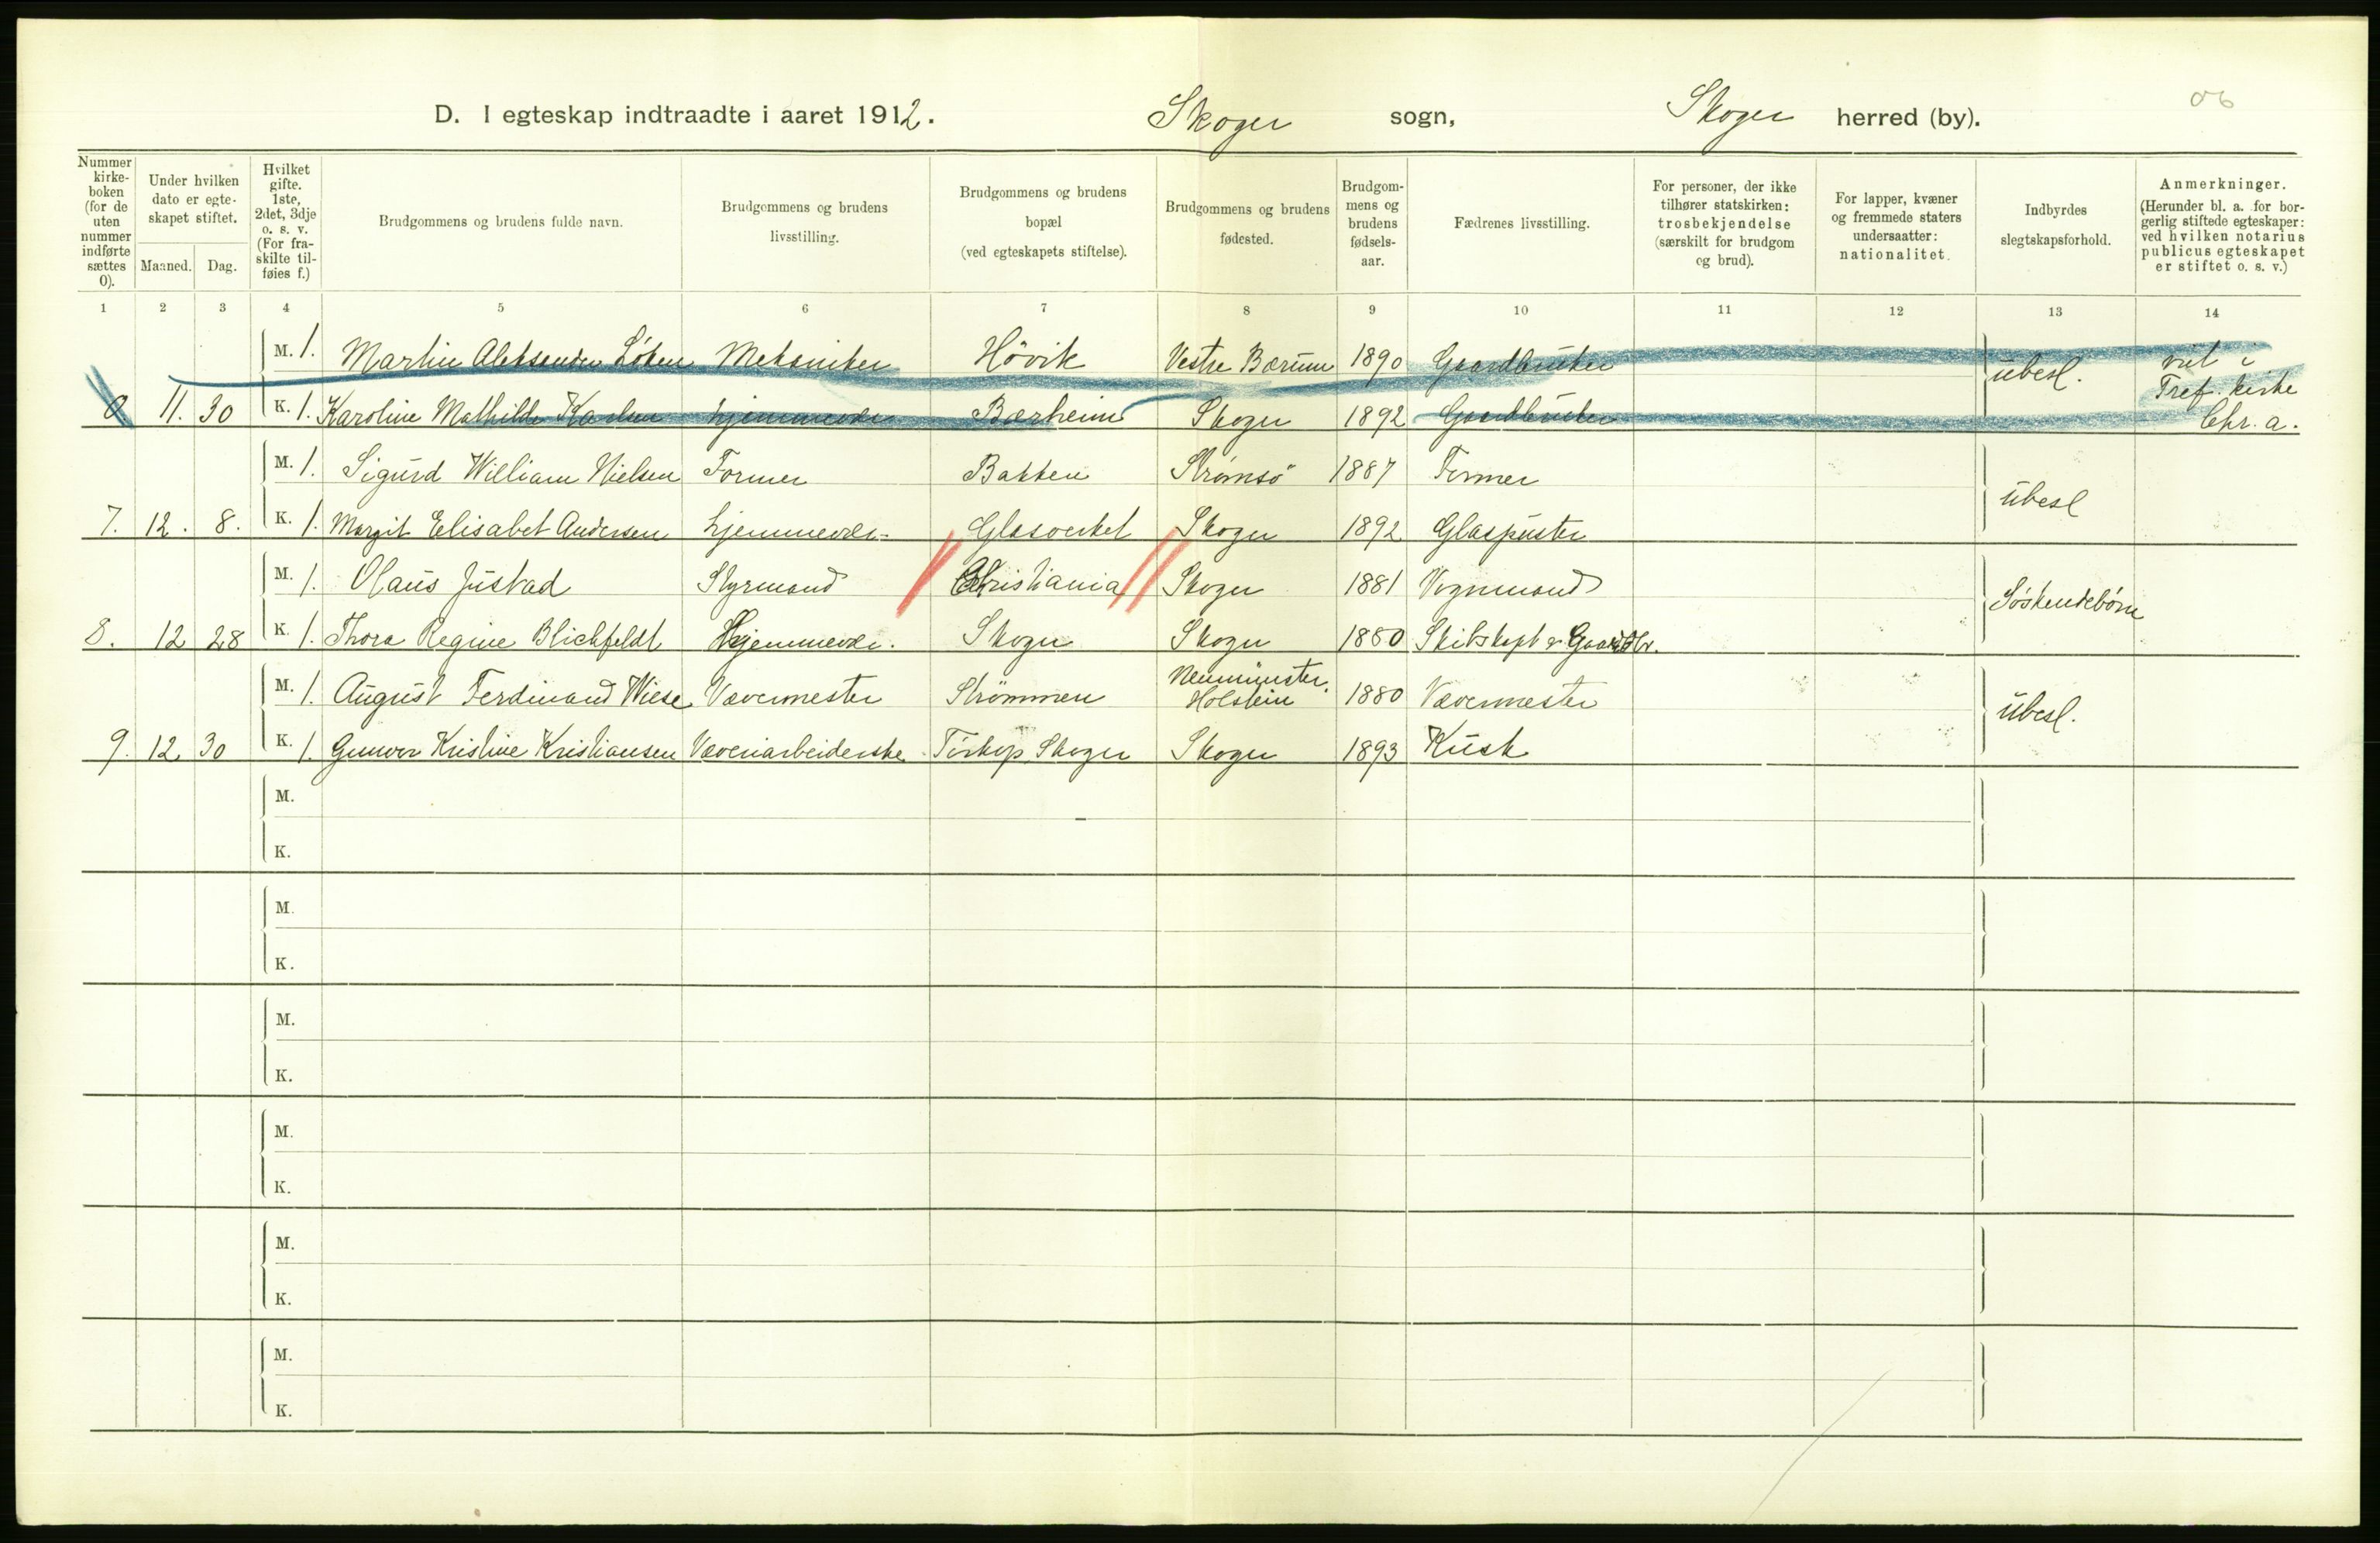 D. I egteskap indtraadte i aaret 1912. Skoger sogn, Skoger herred (by).
Nummer kirkeboken (for de uten nummer indførte sættes 0).
Under hvilken dato er egteskapet stiftet.
Maaned. Dag.
Hvilket gifte. 1ste, 2det, 3dje o. s. v. (For fraskilte tilføies f.)
Brudgommens og brudens fulde navn.
Brudgommens og brudens livsstilling.
Brudgommens og brudens bopæl (ved egteskapets stiftelse).
Brudgommens og brudens fødested.
Brudgommens og brudens fødselsaar.
Fædrenes livsstilling.
For personer, der ikke tilhører statskirken: trosbekjendelse (særskilt for brudgom og brud).
For lapper, kvæner og fremmede staters undersaatter: nationalitet.
Indbyrdes slegtskapsforhold.
Anmerkninger. (Herunder bl. a. for borgerlig stiftede egteskaper: ved hvilken notarius publicus egteskapet er stiftet o. s. v.)
1 2 3 4 5 6 7 8 9 10 11 12 13 14
M. 1. Martin Aleksander Löken Mekaniker Hövik Vestre Bærum 1890 Gaardbruker ubesl. viet i
0 11. 30 K. 1. Karoline Mathilde Karlsen hjemmevær. Bærheim Skoger 1892 Gaardbruker Tref. kirke Chr. a.
M. 1. Sigurd William Nielsen Former Bakken Strømsö 1887 Former ubesl
7. 12. 8. K. 1. Margit Elisabet Andersen hjemmevær. Glasverket Skoger 1892 Glaspuster
M. 1. Olaus Justad Styrmand Christiania Skoger 1881 Vognmand Söskendebörn
8. 12 28 K. 1. Thora Regine Blichfeldt Hjemmevær. Skoger Skoger 1880 Skibskapt & Gaardbr.
M. 1. August Ferdinand Wiese Vævermester Strömmen Neumünster, Holstein 1880 Vævermester ubesl.
9. 12 30 K. 1. Gunvor Kristine Kristiansen Væveriarbeiderske Törkop, Skoger Skoger 1893 Kusk
M.
K.
M.
K.
M.
K.
M.
K.
M.
K.
M.
K.